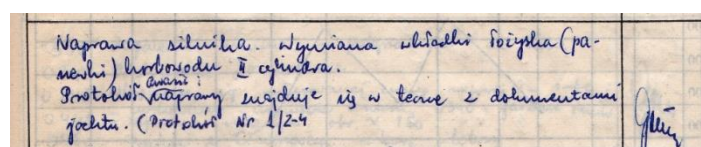 Naprawa silnika. Wymiana wkładki łożyska (pa-
newki) korbowodu II cylindra.
awarii i
Protokół naprawy znajduje się w teczce z dokumentami
jachtu. (Protokół Nr 1/2-4